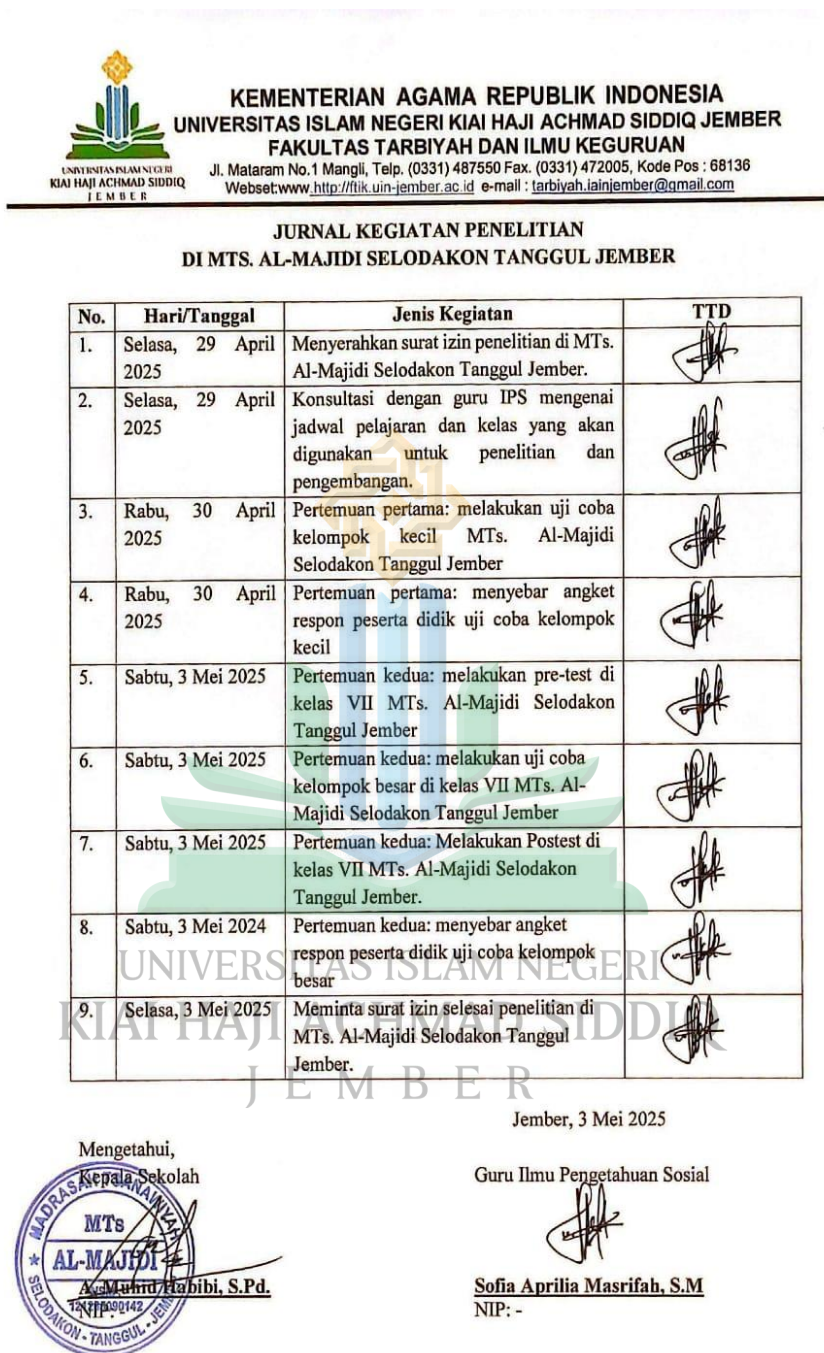 UNIVERSITAS ISLAM NEGERI
KIAI HAJI ACHMAD SIDDIQ
JEMBER
KEMENTERIAN AGAMA REPUBLIK INDONESIA
UNIVERSITAS ISLAM NEGERI KIAI HAJI ACHMAD SIDDIQ JEMBER
FAKULTAS TARBIYAH DAN ILMU KEGURUAN
Jl. Mataram No.1 Mangli, Telp. (0331) 487550 Fax. (0331) 472005, Kode Pos : 68136
Webset:www.http://ftik.uin-jember.ac.id e-mail : tarbiyah.iainjember@gmail.com
JURNAL KEGIATAN PENELITIAN
DI MTS. AL-MAJIDI SELODAKON TANGGUL JEMBER
No. Hari/Tanggal Jenis Kegiatan TTD
1. Selasa, 29 April Menyerahkan surat izin penelitian di MTs.
2025 Al-Majidi Selodakon Tanggul Jember.
2. Selasa, 29 April Konsultasi dengan guru IPS mengenai
2025 jadwal pelajaran dan kelas yang akan
digunakan untuk penelitian dan
pengembangan.
3. Rabu, 30 April Pertemuan pertama: melakukan uji coba
2025 kelompok kecil MTs. Al-Majidi
Selodakon Tanggul Jember
4. Rabu, 30 April Pertemuan pertama: menyebar angket
2025 respon peserta didik uji coba kelompok
kecil
5. Sabtu, 3 Mei 2025 Pertemuan kedua: melakukan pre-test di
kelas VII MTs. Al-Majidi Selodakon
Tanggul Jember
6. Sabtu, 3 Mei 2025 Pertemuan kedua: melakukan uji coba
kelompok besar di kelas VII MTs. Al-
Majidi Selodakon Tanggul Jember
7. Sabtu, 3 Mei 2025 Pertemuan kedua: Melakukan Postest di
kelas VII MTs. Al-Majidi Selodakon
Tanggul Jember.
8. Sabtu, 3 Mei 2024 Pertemuan kedua: menyebar angket
respon peserta didik uji coba kelompok
besar
9. Selasa, 3 Mei 2025 Meminta surat izin selesai penelitian di
MTs. Al-Majidi Selodakon Tanggul
Jember.
UNIVERSITAS ISLAM NEGERI
KIAI HAJI ACHMAD SIDDIQ
JEMBER
Jember, 3 Mei 2025
Mengetahui,
Kepala Sekolah
Guru Ilmu Pengetahuan Sosial
MADRASAH TSANAWIYAH
MTs
AL-MAJIDI
SELODAKON - TANGGUL - JEMBER
A. Muhid Habibi, S.Pd.
NIP: -
Sofia Aprilia Masrifah, S.M
NIP: -